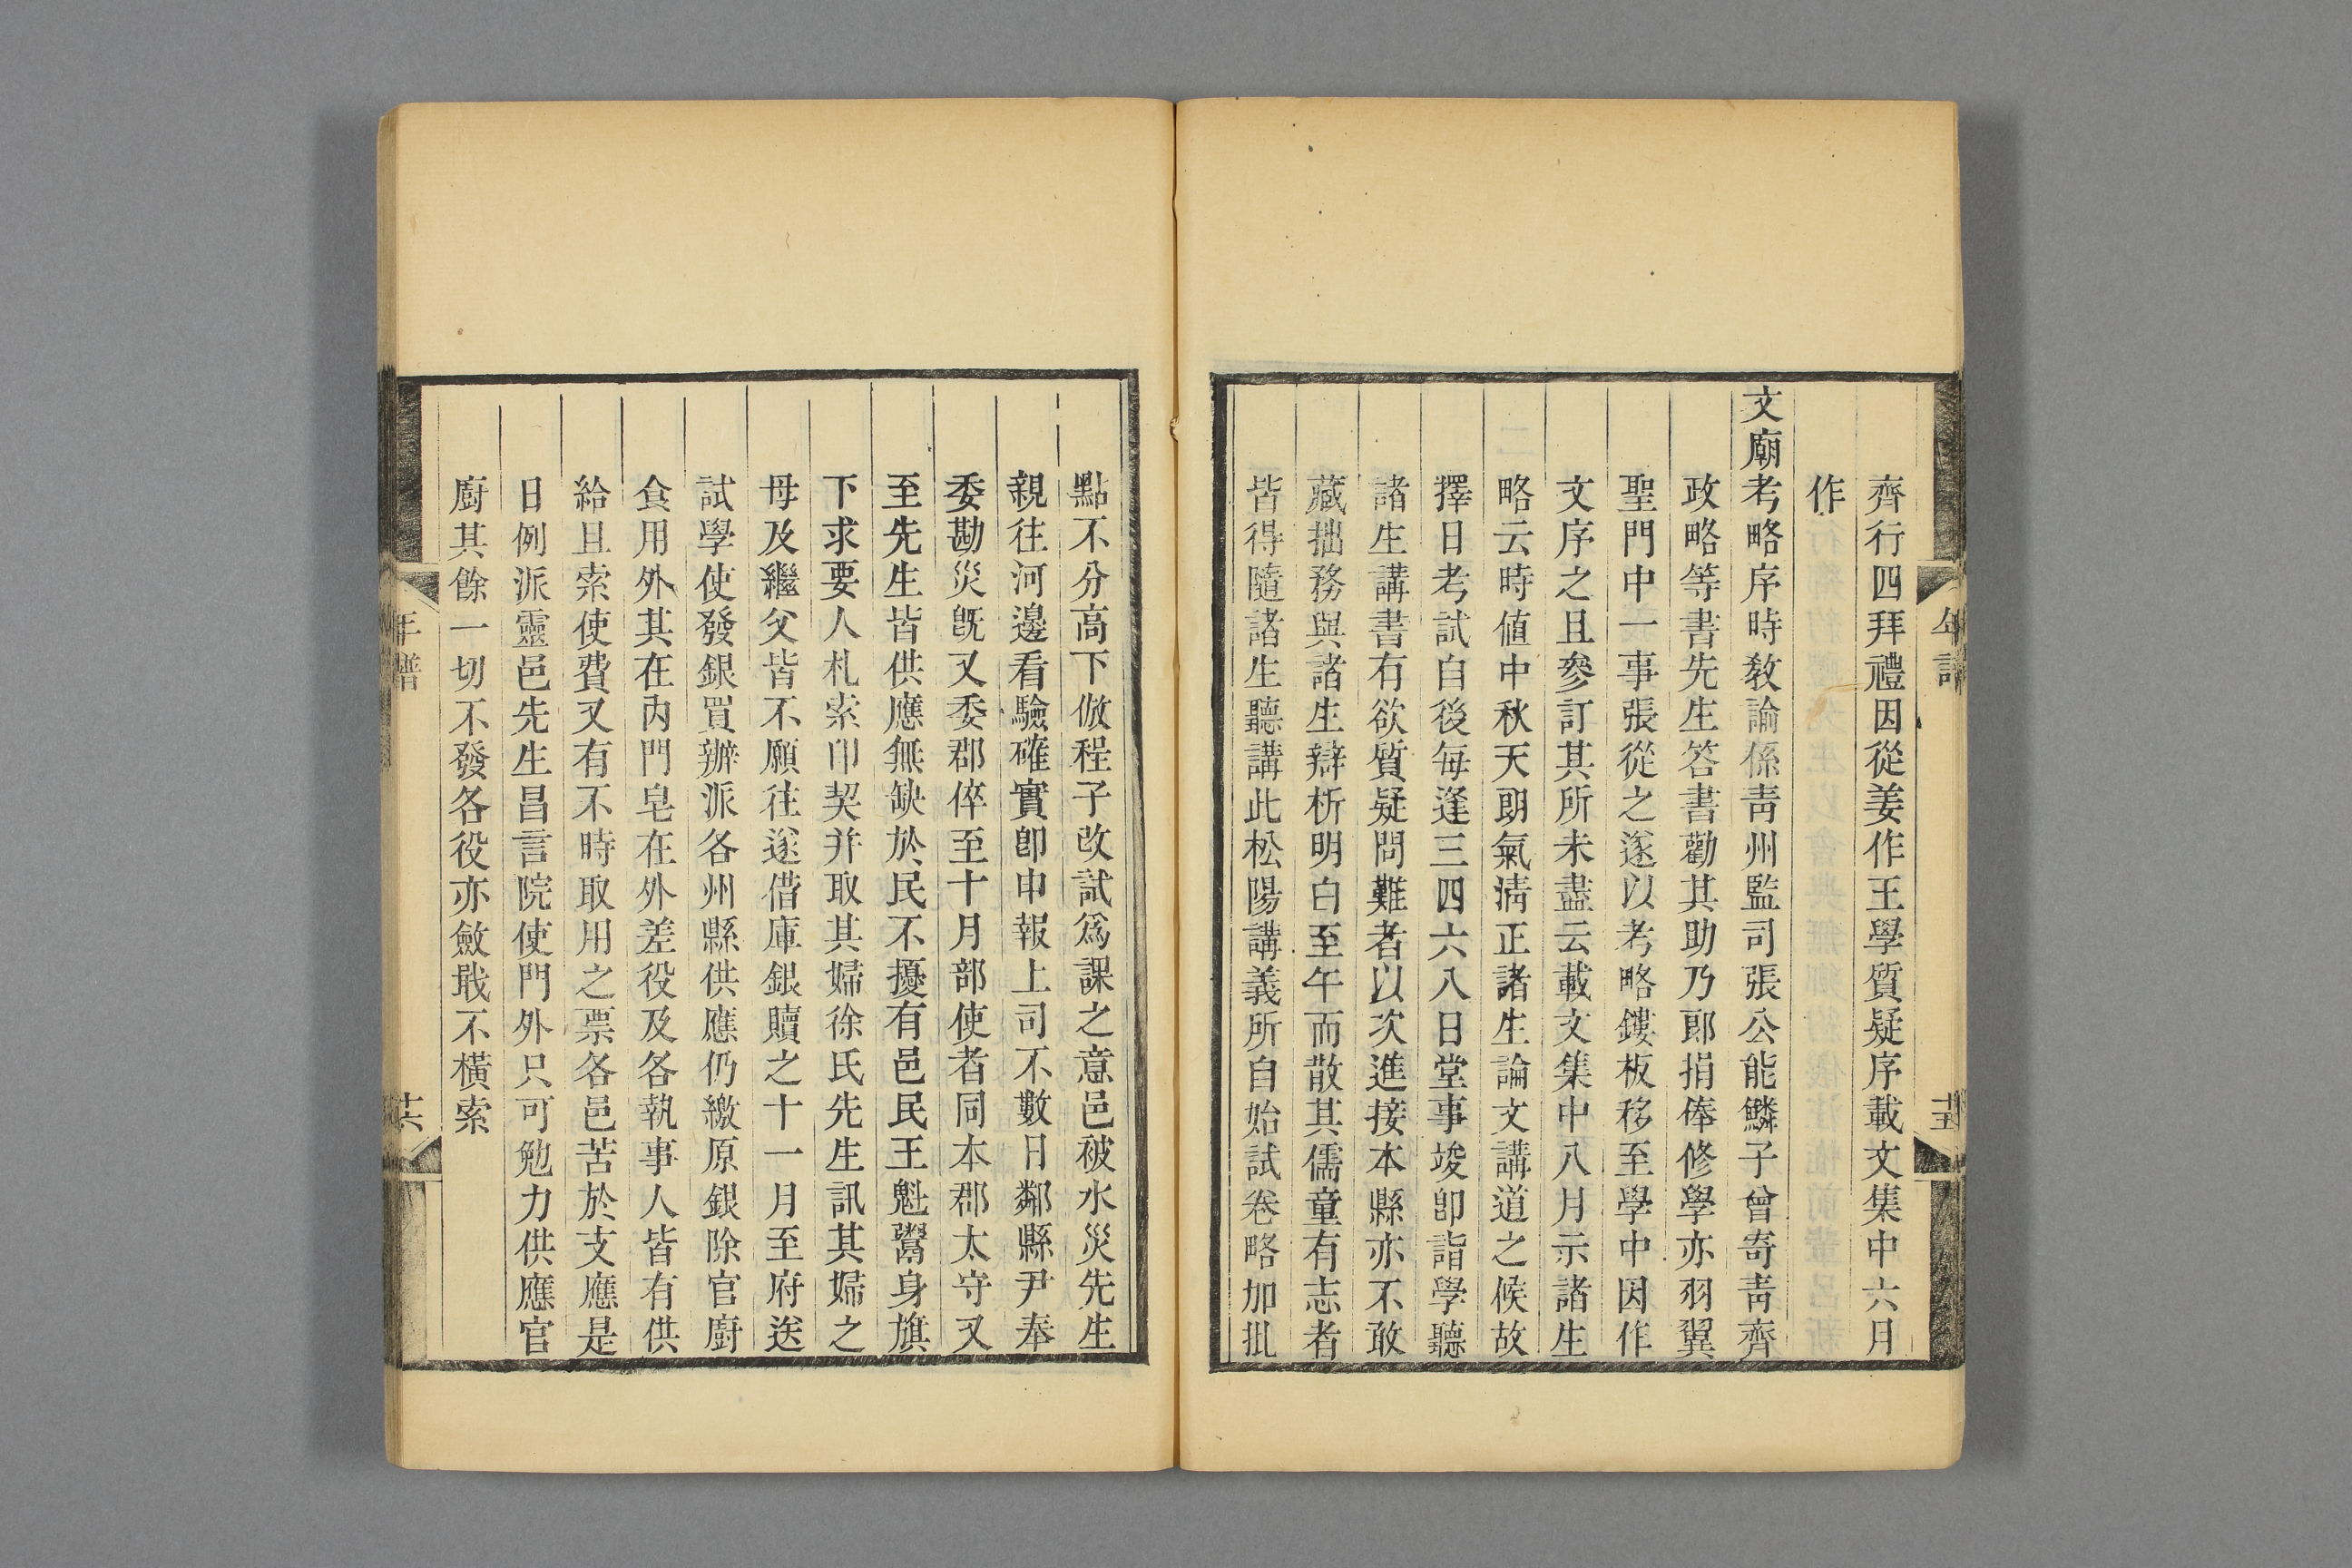 年譜
十五
齊行四拜禮因從姜作王學質疑序載文集中六月
作
文廟考略序時敎諭係靑州監司張公能鱗子曾寄靑齊
政略等書先生答書勸其助乃郎捐俸修學亦羽翼
聖門中一事張從之遂以考略鏤板移至學中因作
文序之且參訂其所未盡云載文集中八月示諸生
略云時値中秋天朗氣淸正諸生論文講道之候故
擇日考試自後每逢三四六八日堂事竣卽詣學聽
諸生講書有欲質疑問難者以次進接本縣亦不敢
藏拙務與諸生辯析明白至午而散其儒童有志者
皆得隨諸生聽講此松陽講義所自始試卷略加批
點不分高下倣程子改試爲課之意邑被水災先生
親往河邊看驗確實卽申報上司不數日鄰縣尹奉
委勘災旣又委郡倅至十月部使者同本郡太守又
至先生皆供應無缺於民不擾有邑民王魁鬻身旗
下求要人札索印契并取其婦徐氏先生訊其婦之
母及繼父皆不願往遂借庫銀贖之十一月至府送
試學使發銀買辦派各州縣供應仍繳原銀除官廚
食用外其在內門皂在外差役及各執事人皆有供
給且索使費又有不時取用之票各邑苦於支應是
日例派靈邑先生昌言院使門外只可勉力供應官
廚其餘一切不發各役亦斂戢不橫索
年譜
十六